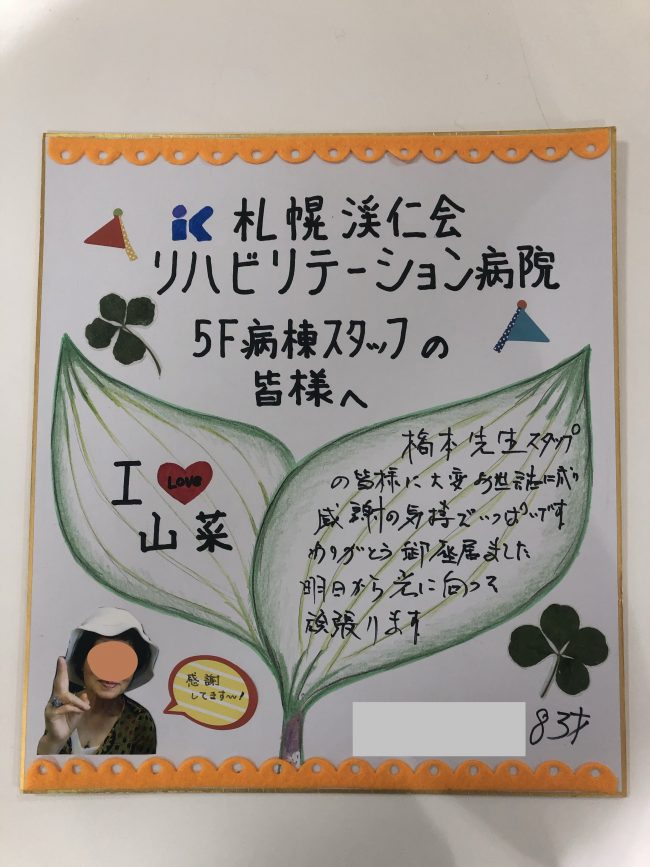 iK 札幌 渓仁会
リハビリテーション病院
5F病棟スタッフの
皆様へ
I Love
山菜
橋本先生スタップ
の皆様に大変お世話に成り
感謝の気持でいっぱいです
ありがとう御座居ました
明日から光に向って
頑張ります
感謝
してます〜!
83才